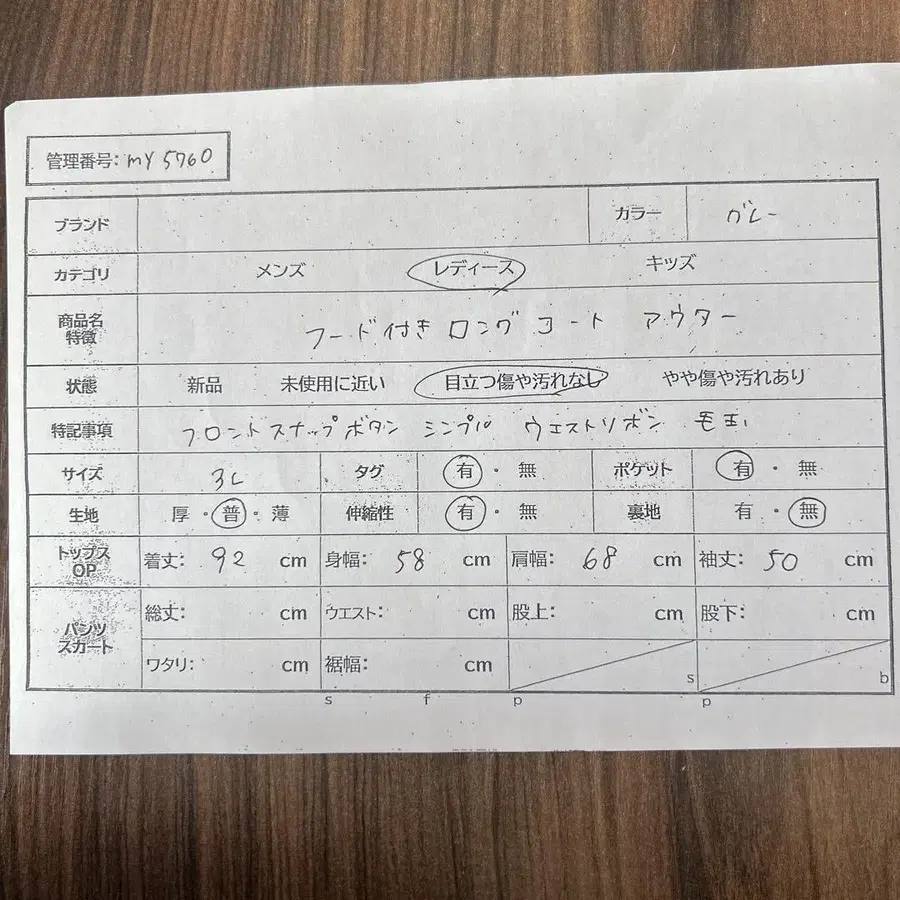 管理番号: my 5760
ブランド カラー グレー
カテゴリ メンズ レディース キッズ
商品名 特徴 フード付き ロング コート アウター
状態 新品 未使用に近い 目立つ傷や汚れなし やや傷や汚れあり
特記事項 フロントスナップボタン シンプル ウエストリボン 毛玉
サイズ 3L タグ 有・無 ポケット 有・無
生地 厚・普・薄 伸縮性 有・無 裏地 有・無
トップス OP 着丈: 92 cm 身幅: 58 cm 肩幅: 68 cm 袖丈: 50 cm
パンツ スカート 総丈: cm ウエスト: cm 股上: cm 股下: cm
ワタリ: cm 裾幅: cm s b
s f p p